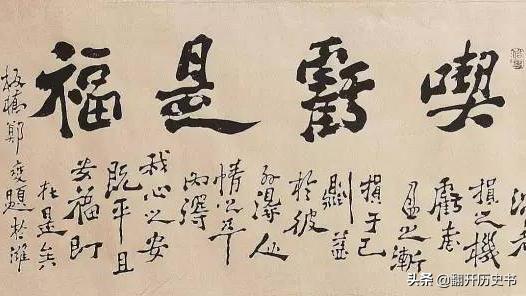 喫虧是福
滿者
損之機
虧者
盈之漸
損于己
則益
於彼
外得人
情之平
內得
我心之安
既平且
安福即
在是矣
板橋鄭燮題於濰
头条 @翻开历史书